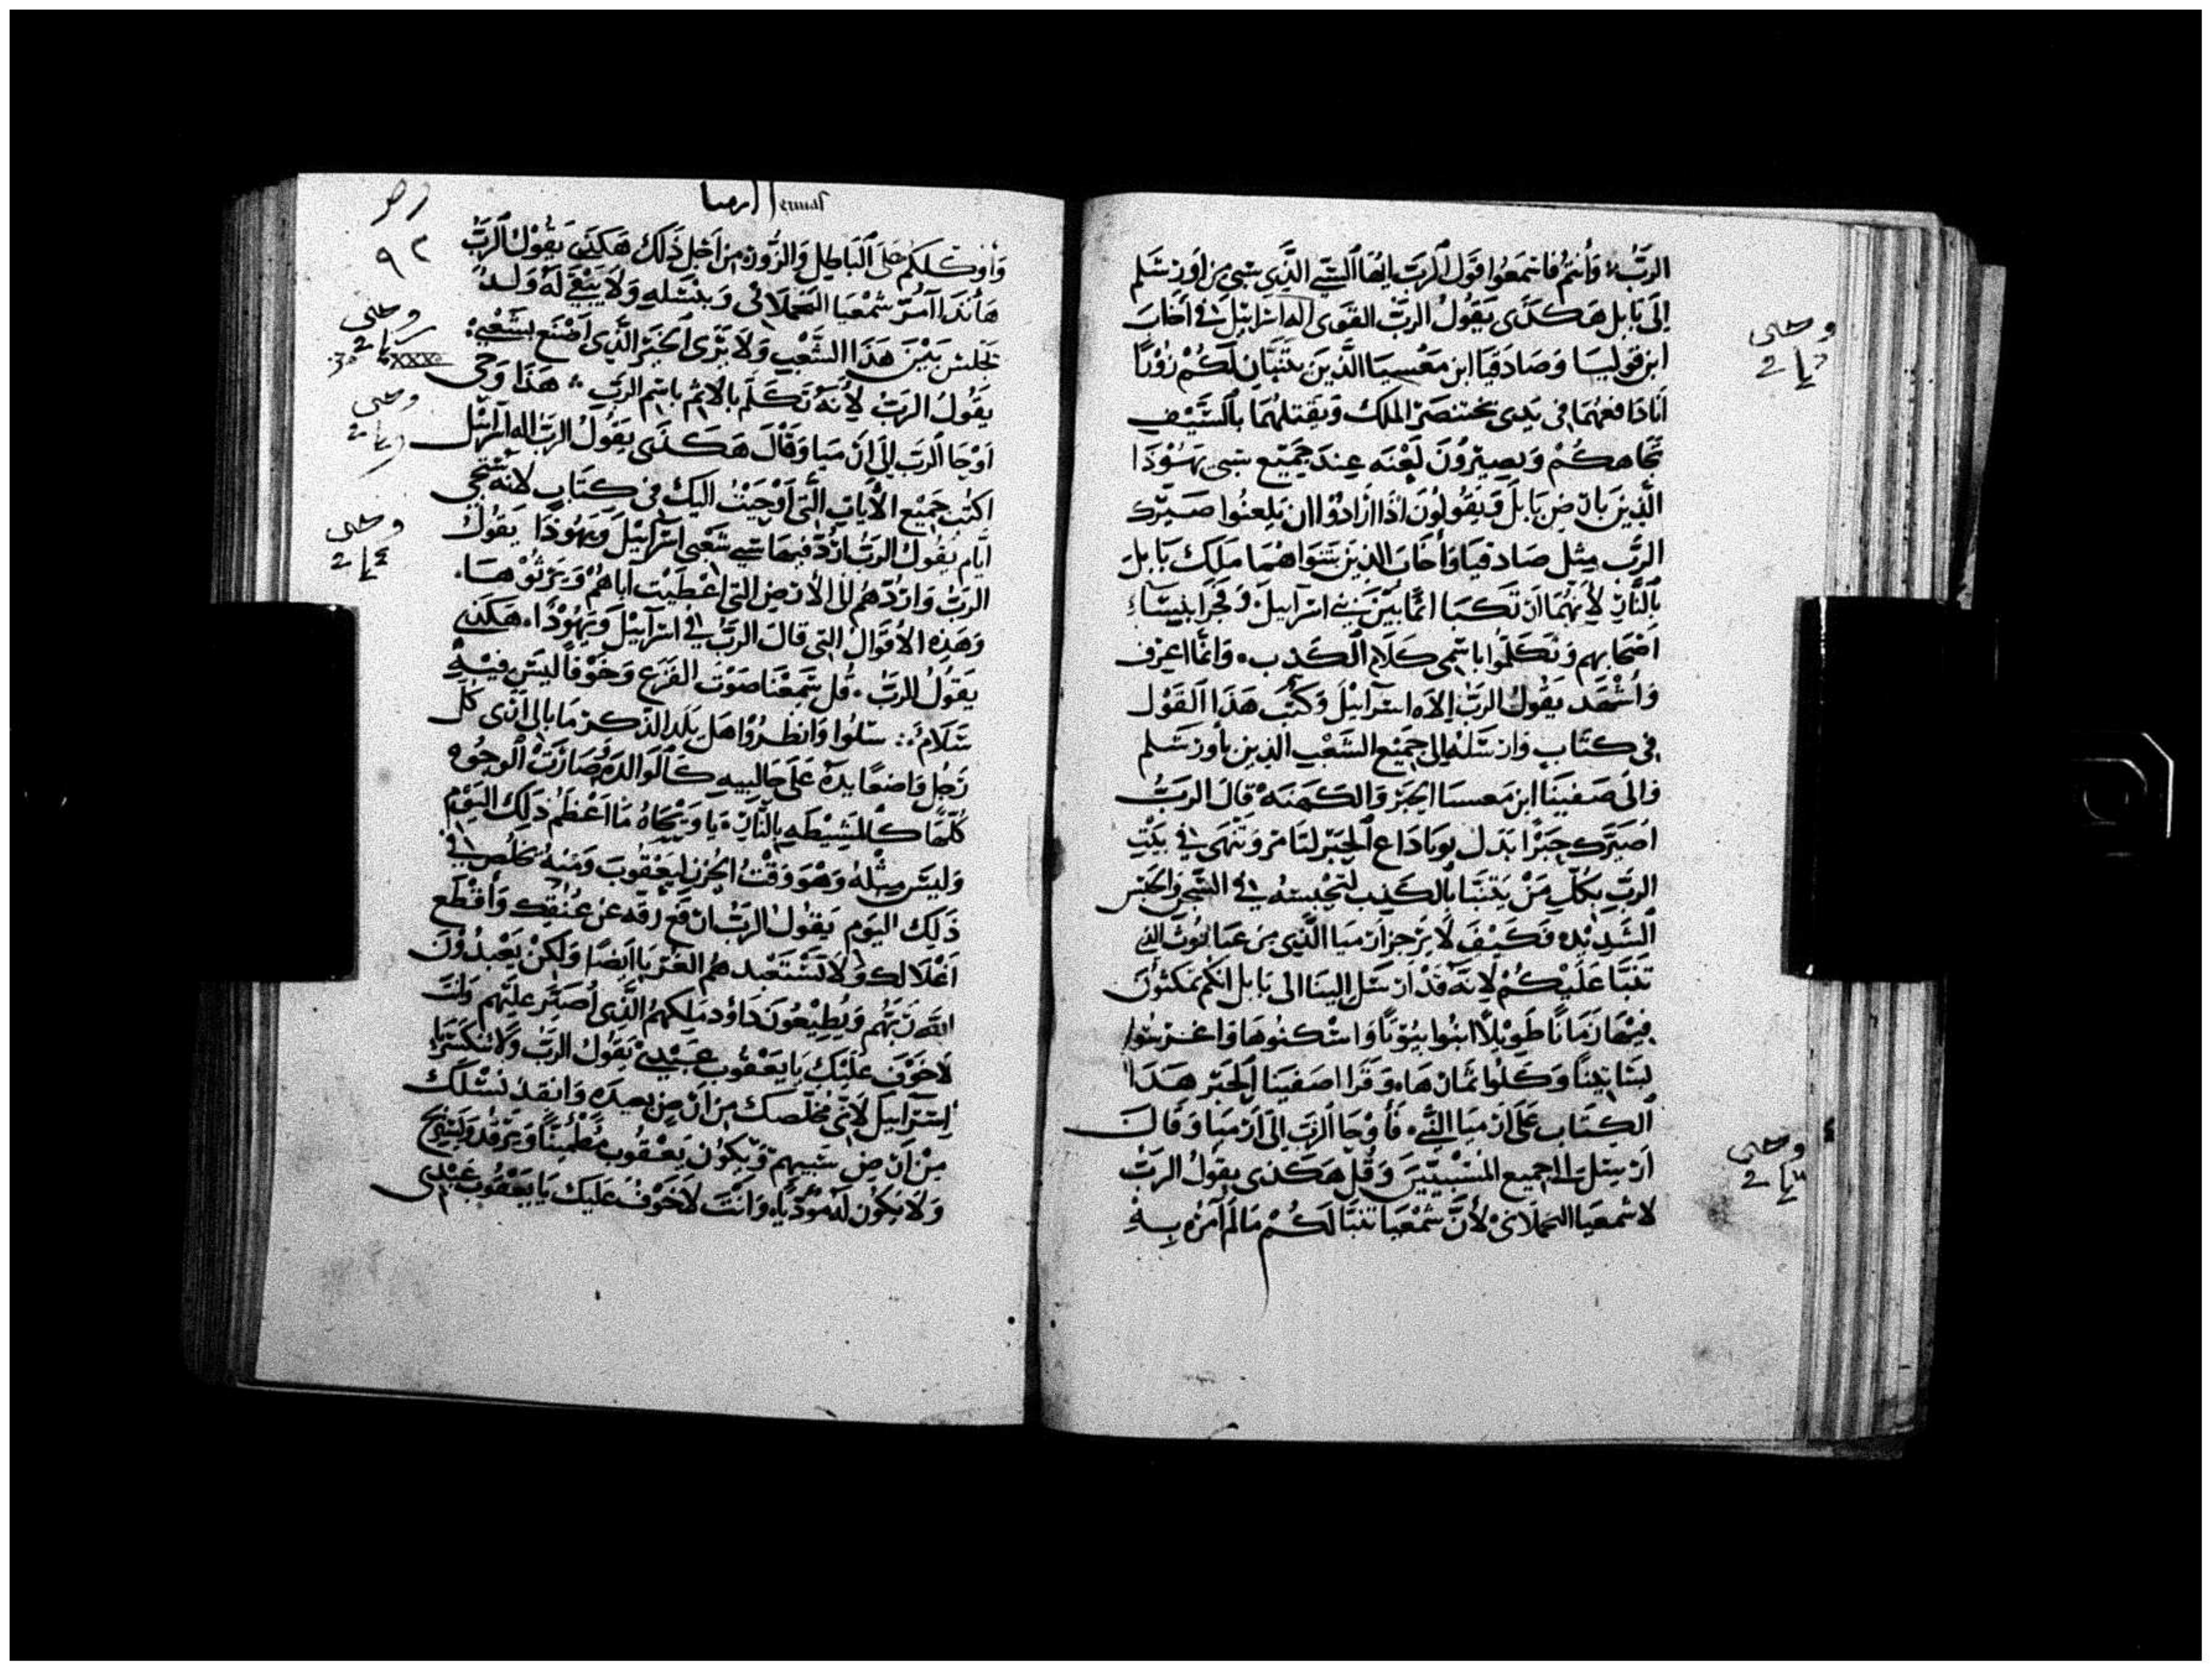 الرَبُّ وَأَنتُمْ فَاسْمَعُوا قَوْلَ الرَبّ ايُهَا السَّبي الَّذِي سُبي مِنْ أورشَلم
إلَى بَابل هَكَذَى يَقُولُ الربُّ القوَى اله اسْرَاييلَ في أَخَابَ
ابن قوليسَا وَصَادَقيَا ابن مَعْسيَا الَّذينَ يَتَنَبَّيَان لَكُمْ زُوْرًا
أنَا دَافعهُمَا في يَدي بختنصَر الملك وَيَقتلهُمَا بالسَّيْف
تُجَاهكُمْ وَيصِيْرُونَ لَعْنَه عِندَ جَمِيْع سَبي يَهُوُدَا
الَّذينَ بارْض بَابلَ وَيَقُولُونَ اذَا ارَادُوْا ان يَلعنُوا صَيَّرك
الرَّب مِثل صَادقيَا وَأخَابَ الذِينَ شَوَاهُمَا مَلك بَابل
بالنَّار لأنهُمَا ارْتَكبَا اثمًا بَيْنَ بَني اسْرَاييلَ وَفجَرَا بنِسَاءِ
اصْحَابهم وَتكَلّمُوا باسْمي كلَام الكَذِب وَانَا اعرف
وَأَشْهَد يقُولُ الربّ إلاه اسْرَاييْلَ وَكتُبَ هَذَا القَوْل
في كتَاب وَارْسَلهُ إلى جَميْع الشَعْب الذِين بأورشَلم
وَالَى صَفينَا ابن مَعسيا الحَبرْ وَالكهَنَه قالَ الربُّ
اصَيَّرك حِبرًا بَدَل يويَادَاع الحِبر لتَامر وَتنْهَى في بَيْتِ
الربّ بكُلّ مَنْ يَتنبَّا بالكَذِب لتَحْبسَه في السّجن وَالحبْس
الشَديْده فَكَيْفَ لَا تزجر أرْميَا الَّذي مِن عَنَاتوُث الذي
تَنبَّا عَليْكُمْ لِانَّه قَدْ ارْسَل إليْنَا الى بَابل انكم تمكثوُنَ
فِيْهَا زَمَانًا طَويْلًا ابنُوا بيُوْتًا وَاسْكنوُهَا وَاغرسُوا
بسَاتيْنًا وَكلُوا ثمَارهَا وَقَرَا صَفينَا الحَبر هَذَا
الكِتَاب عَلَى ارْميَا النَّبي فَأوحَا الرَبّ إلَى ارْميَا وَقَالَ
ارْسِل إلى جميع المُسْبيّيْنَ وَقُل هَكذى يقولُ الربُّ
لاشمعيَا النحلَانيْ لأنَّ شمعْيَا تنَبَّا لَكُمْ مَا لمْ آمرُه بِهِ
Jermas ارميا
٩٢
وَأوكَلكُمْ عَلَى الْبَاطِل وَالزُّور مِنْ اجْل ذَلكَ هَكَذَى يَقُوْل الرَبّ
هَأَنذَا آمُرْ شمْعيَا النحلَاني وَبنسْله وَلَا يَبْقَى لهُ وَلدٌ
يَجلسْ بَيْنَ هَذَا الشَّعْب وَلَا يَرَى الخيْرَ الَّذي اصْنَع بشَعْبي
يَقُولُ الرَبّ لأنهُ تَكلّم بالاثم باسْم الرَبّ هَذَا وَحْي
اوْحَا الرَبّ إلى ارْميَا وَقَالَ هَكَذَى يَقُولُ الربّ اله اسْرَاييل
اكتُب جَميْع الأيَات التي اوْحَيْتُ اليكَ في كتَاب لأنهُ تَجي
ايَّام يَقُولُ الربّ اردّ فيهَا سَبي شَعْبي اسْرَاييْلَ وَيَهُوْذَا يَقُولُ
الربّ وَاردّهُمْ الى الأرْض التي اعْطيْت اباهُمْ وَيَرثُوْهَا
وَهَذِه الأقوَالُ التي قالَ الربّ في اسْرَاييْلَ وَيَهُوْذَا هَكذَى
يَقُولُ الربّ قُل سَمِعْنَا صَوْتَ الفَزَع وَخَوْفًا ليسَ فيْهِ
سَلَامٌ سَلُوا وَانظرُوْا هَل يَلد الذّكر مَا بَالي ارَى كُلّ
رَجُل وَاضعًا يدَهُ عَلَى حَالبيهِ كَالوَالده وَصَارَتْ الْوجُوْه
كُلّهَا كَالمشيْطَه بالنَّار يَا وَيْحَاهُ مَا اعْظَمْ ذَلكَ اليَوْم
وَليسَ مِثْلهُ وَهْوَ وَقْتُ الحُزن ليَعْقوُبَ وَمنهُ يخلُص في
ذَلكَ اليَوم يَقُول الربّ ارْفع رقه عَن عُنقكَ وَأقْطَع
اغْلَالكَ وَلَا تَسْتعْبدهم الغُرَبَا ايضًا وَلَكنْ يَعْبدُوْنَ
الله رَبّهُم وَيُطِيْعُونَ دَاوُد مَلكهمُ الَّذي أُصَيّر عليْهم وَانتَ
لَاخَوْفَ عَليْكَ يَا يَعْقُوُب عَبدي يَقُولُ الربّ وَلَا تنكسر يَا
اسْرَاييل لأنّي مُخلّصكَ مِن ارْضٍ بعيدَه وَانقذ نسْلكَ
مِنْ ارْض سَبيهمْ وَيَكُوُن يَعْقُوب مُطمئنًا وَيَرقد وَيَسْتَريح
وَلَا يَكُوْن لهُ مُوْذيًا وَانْتَ لَا خَوْفَ عَليكَ يَا يَعْقُوب عَبْدي
وحى
XXX
30
وحى
وحى
وحى
وحى